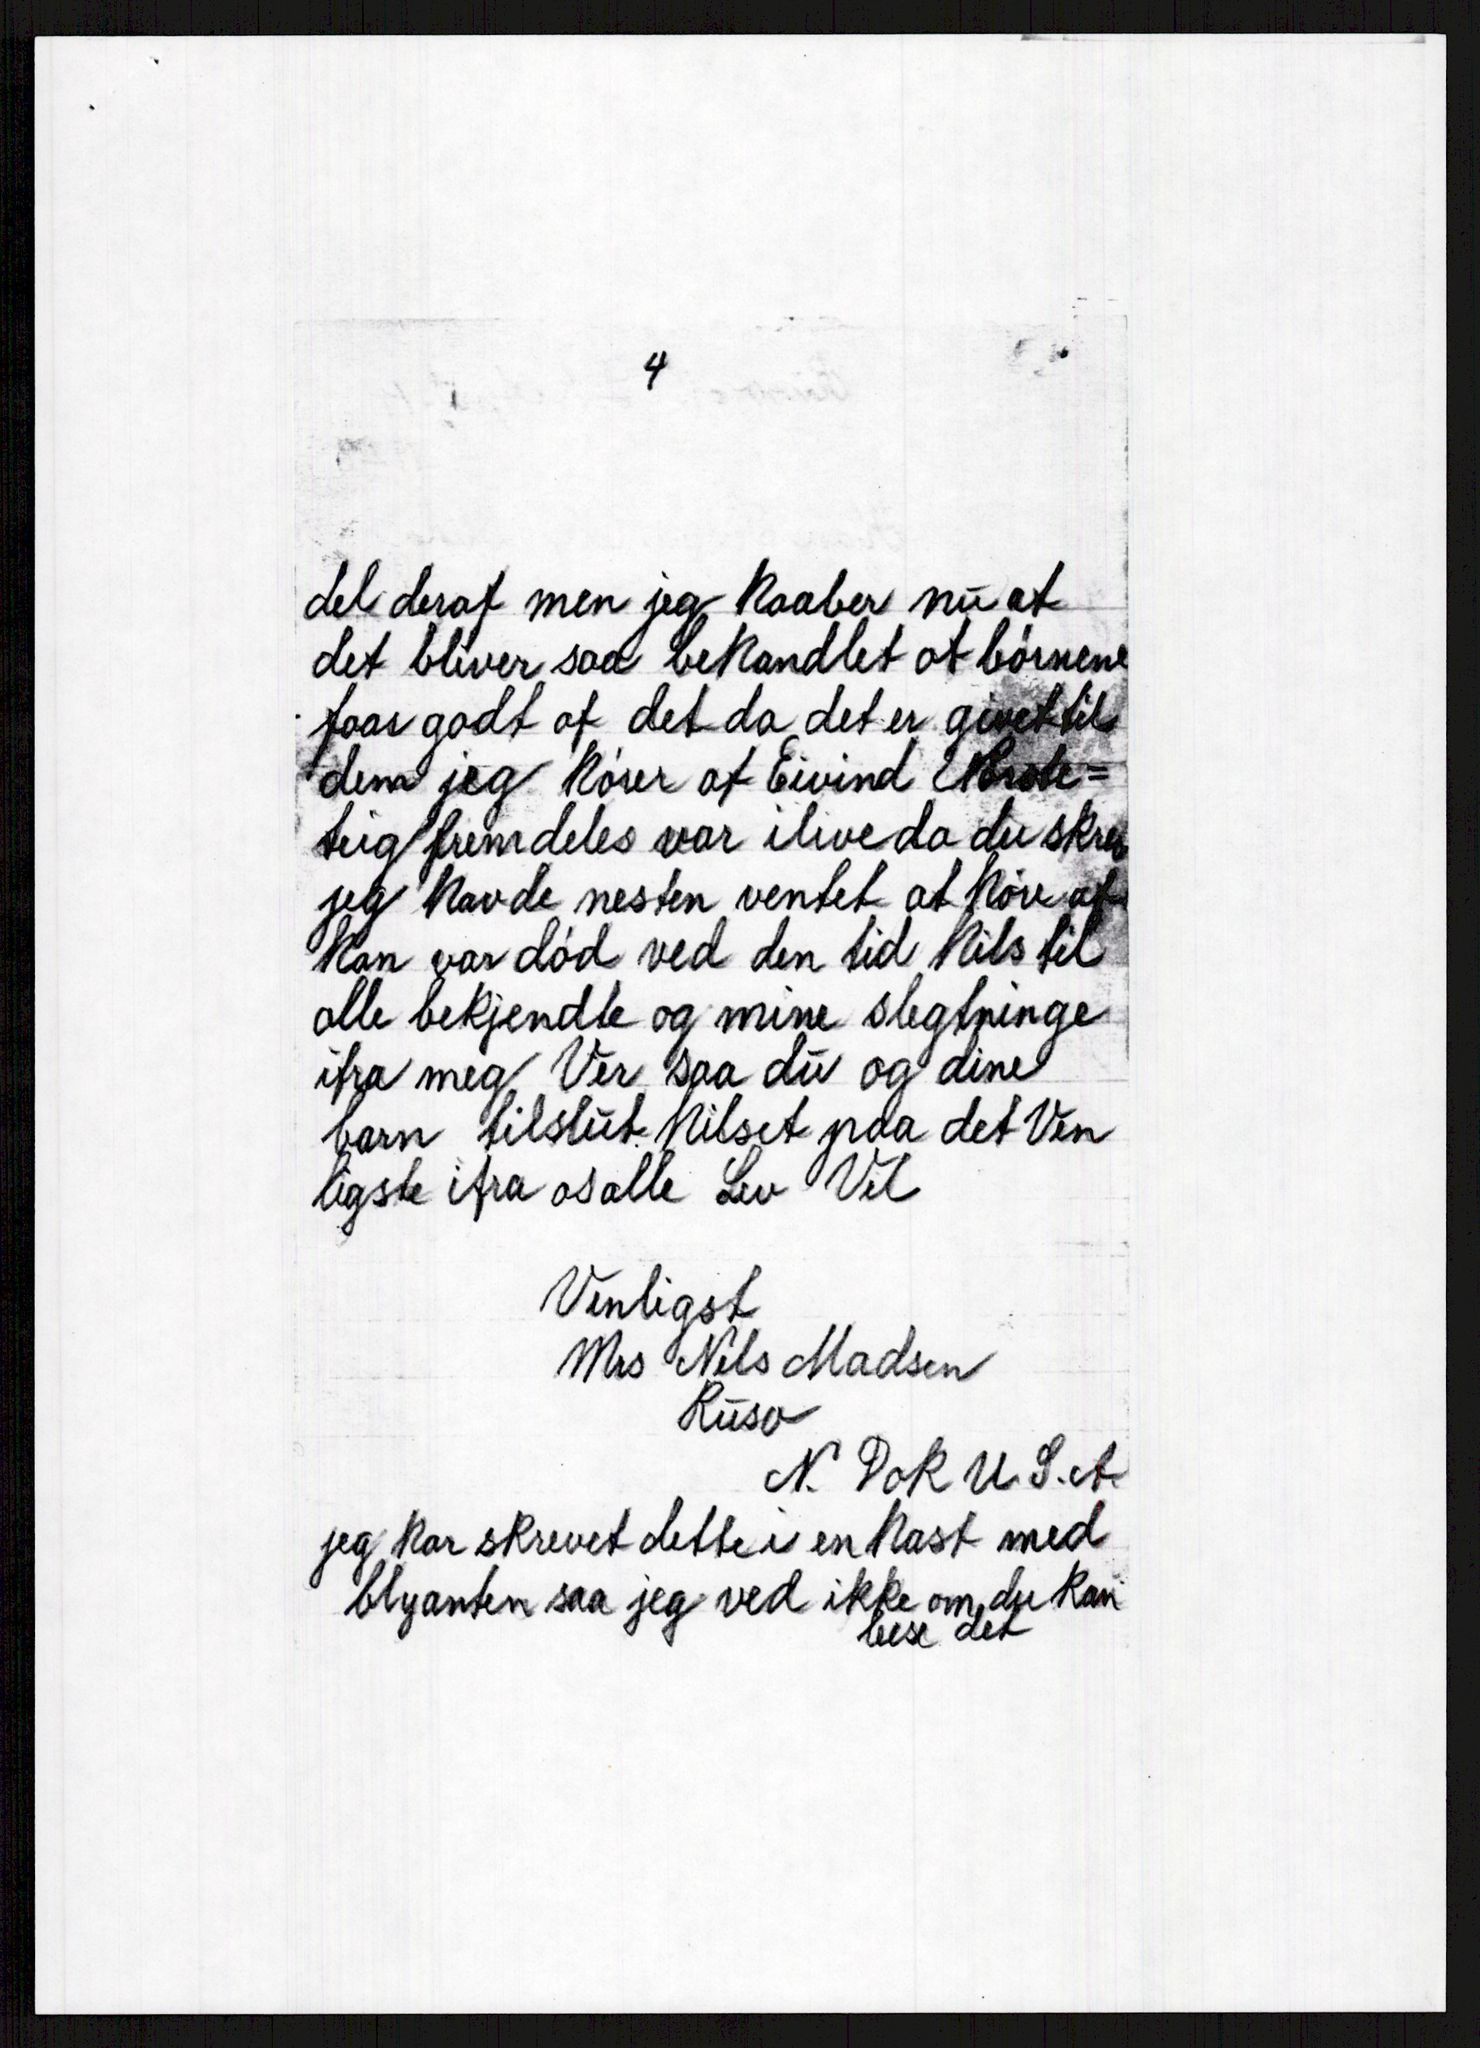 4
del deraf men jeg haaber nū at
det bliver saa behandlet at börnene
faar godt af det da det er givet til
dem jeg hörer at Eivind
teig fremdeles var ilive da du skrev
jeg havde nesten ventet at höre at
han var död ved den tid Hils til
alle bekjendte og mine slegtninge
ifra meg Ver saa dū og dine
barn tilslūt hilset paa det Ven
ligste ifra os alle Lev Vel
Venligst
Mrs Nels Madsen
Rūso
N. Dok U. S. A.
jeg har skrevet dette i en hast med
blyanten saa jeg ved ikke om du kan
lese det